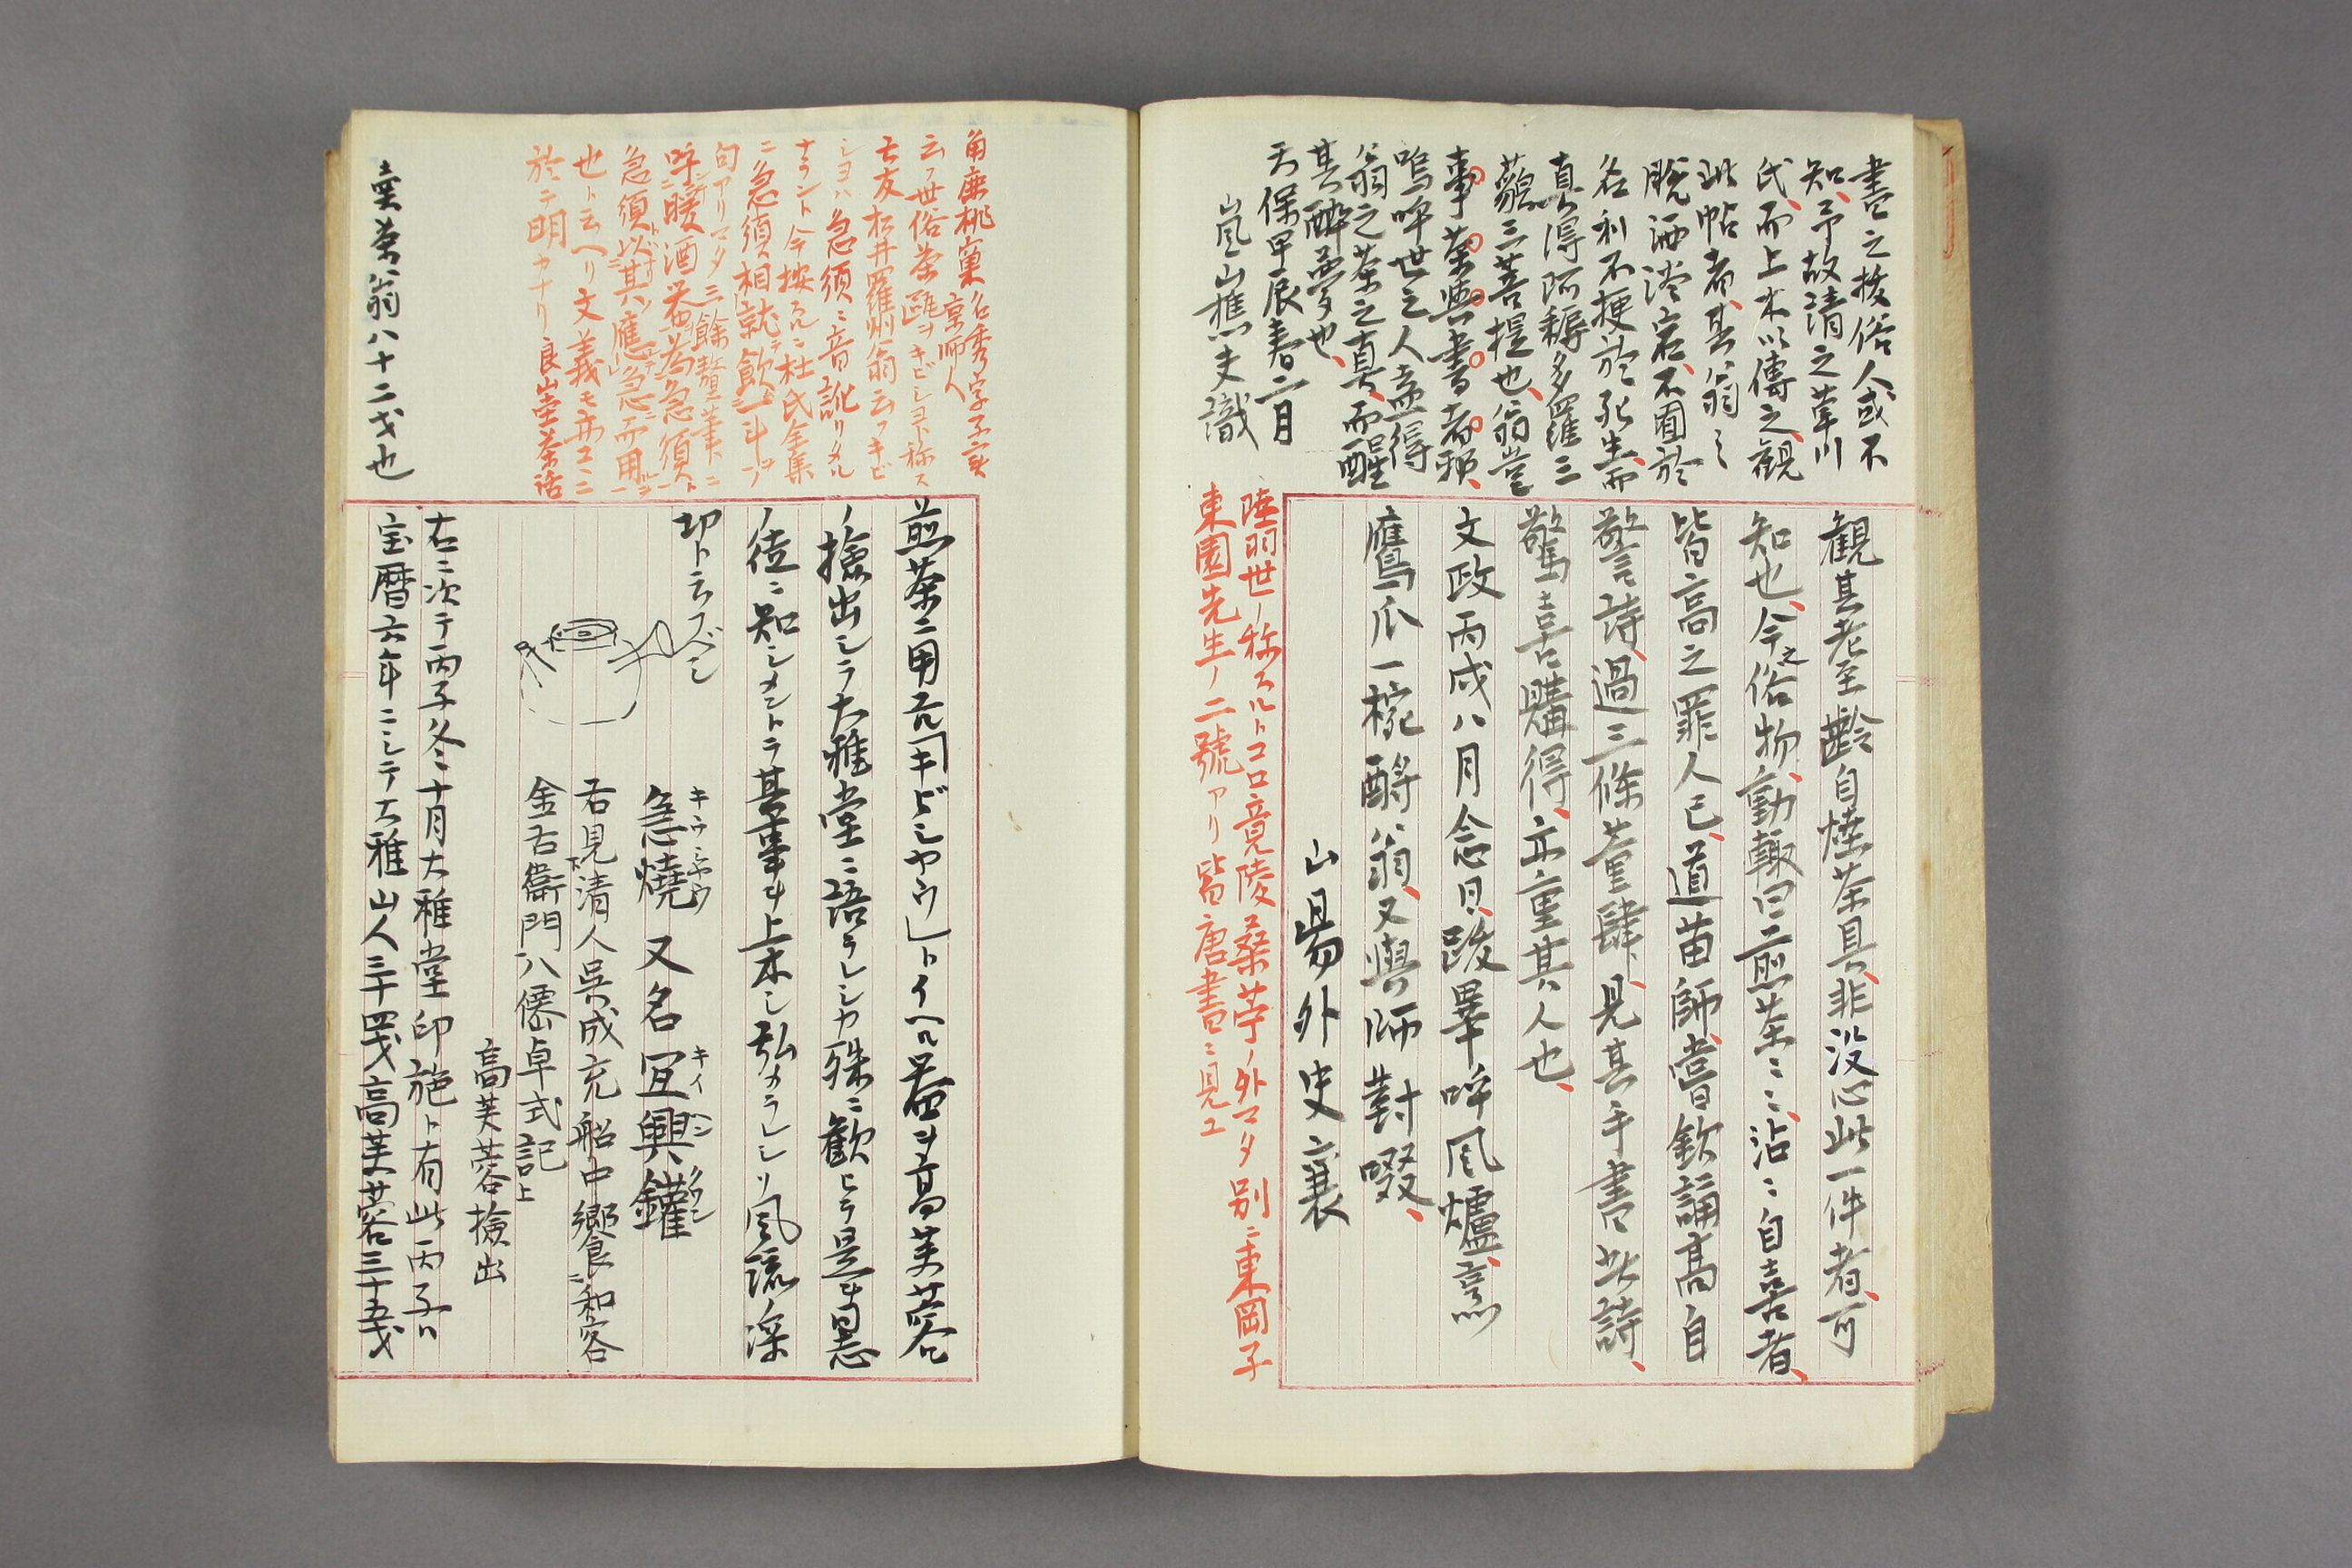 書之抜俗人或不
知、予故請之葦川
氏、而上木以傳之、観
此帖者、其翁之
脱洒澹宕、不囿於
名利不梗於死生、而
真得阿耨多羅三
藐三菩提也、翁豈
事茶與書者類、
嗚呼世之人盍得
翁之茶之真、而醒
其酔夢也、
天保甲辰春二月
嵐山樵夫識
観其老至齢自煙茶具、非没心此一件者、可
知也、今之俗物、動輙曰二煎茶ニニ、沾ニ自喜者、
皆高之罪人已、道苗師、嘗欽誦髙自
警詩、過三條董肆、見其手書此詩、
驚喜購得、亦重其人也、
文政丙戌八月念日、跋畢呼風爐、烹
鷹爪一椀酹翁、又與師對啜、
山昜外史襄
陸羽世ノ称スルトコロ竟陵桑苧ノ外マタ別ニ東岡子
東園先生ノ二號アリ皆唐書ニ見ユ
角鹿桃窠 名秀字子実
京師人
云フ世俗茶甌ヲキビシヨト称ス
亡友松井羅州翁云フキビ
シヨハ急須ノ音訛リタル
ナラント今按ルニ杜氏全集
ニ急須相就飲一斗ノ
句アリマタ三餘贅筆ニ
呼暖酒器為急須ト
急須以其應急而用
也ト云ヘリ文義モ亦コヽニ
於テ明カナリ 良山堂茶話
煎茶ニ用ル「キビシヤウ」トイヘル器ヲ高芙蓉
ノ撿出シテ大雅堂ニ語ラレシカ殊ニ歓ヒテ是ヲ同志
ノ徒ニ知シメントテ其事ヲ上木シ弘メラレシソ風流ノ深
切ト云フベシ
キウシヤウ
急燒 又名 宜興鑵
キイ シン クワン
右見清人呉成充船中饗下和客
金右衞門八僊卓式記上
高芙蓉撿出
右ニ次テ丙子冬十月大雅堂印施ト有此丙子ハ
宝暦六年ニシテ大雅山人三十四戈高芙蓉三十五戈
賣茶翁八十二戈也